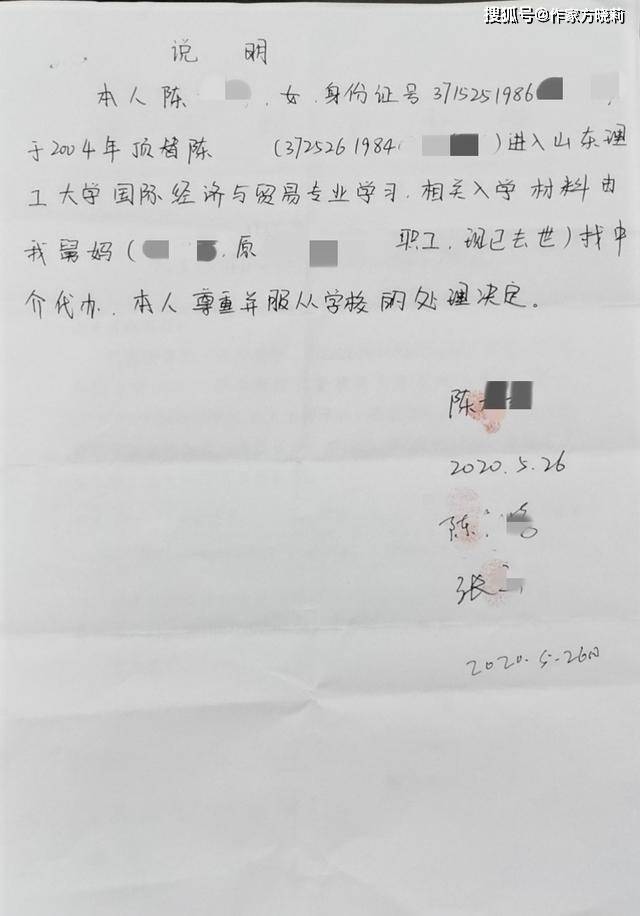 搜狐号@作家方晓莉
说 明
本人陈 , 女, 身份证号 3715251986 ,
于2004年顶替陈 (3725261984 )进入山东理
工大学国际经济与贸易专业学习, 相关入学材料由
我舅妈( , 原 职工, 现已去世)找中
介代办, 本人尊重并服从学校的处理决定。
陈
2020.5.26
陈
张
2020.5.26日